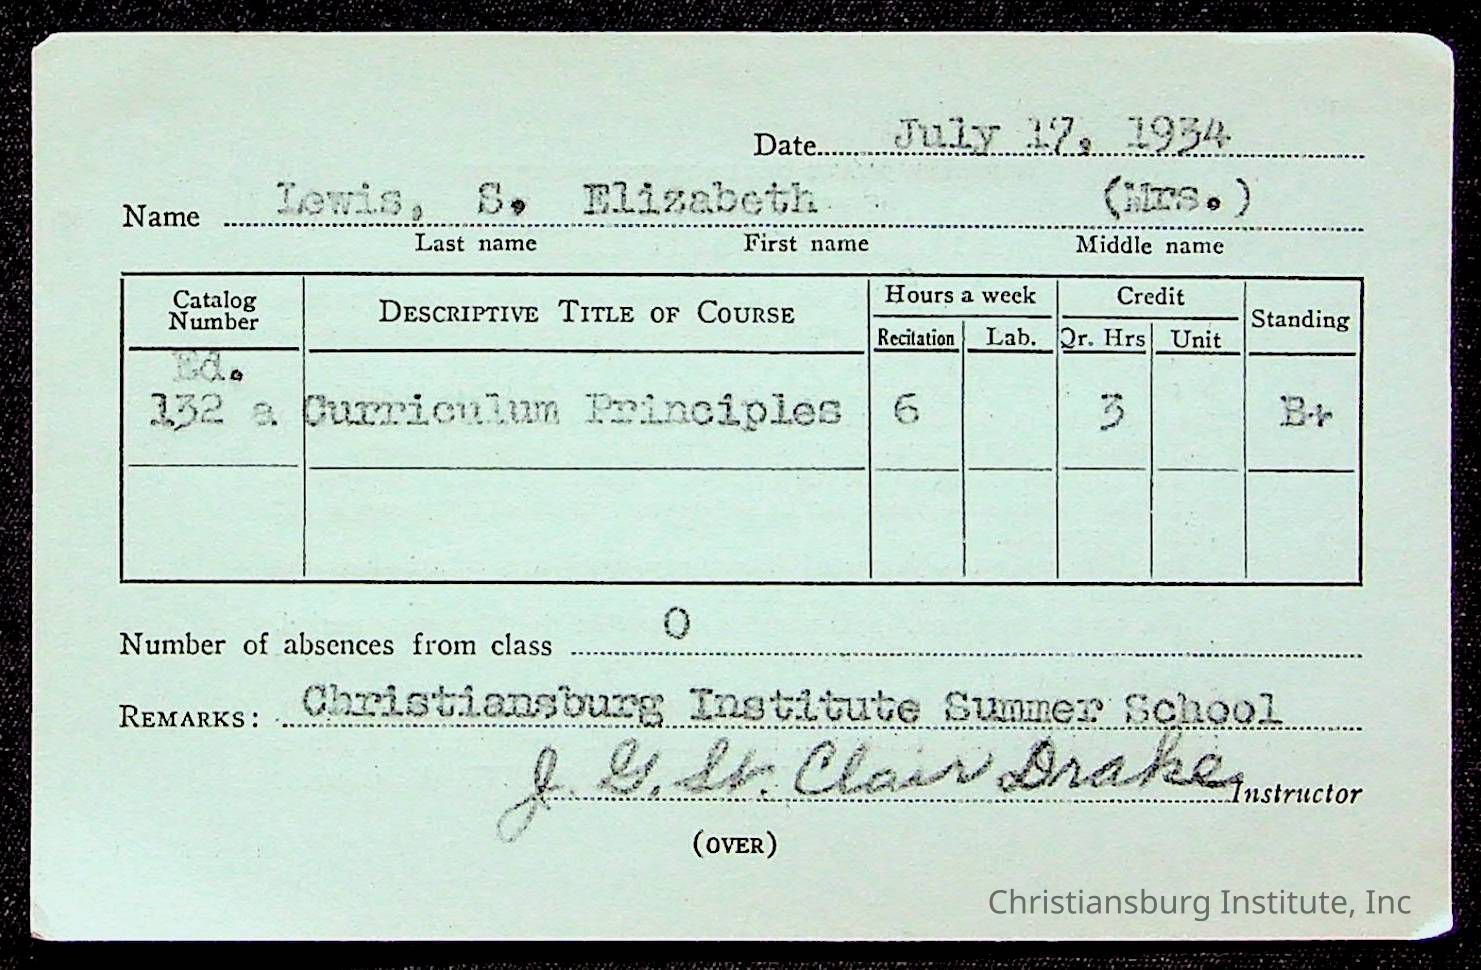 Date July 17, 1934
Name Lewis, S. Elizabeth (Mrs.)
Last name First name Middle name
Catalog Number DESCRIPTIVE TITLE OF COURSE Hours a week Credit Standing
Recitation Lab. Qr. Hrs Unit
Ed.
132 a Curriculum Principles 6 3 B+
Number of absences from class 0
REMARKS: Christiansburg Institute Summer School
J. G. St. Clair Drake Instructor
(OVER)
Christiansburg Institute, Inc